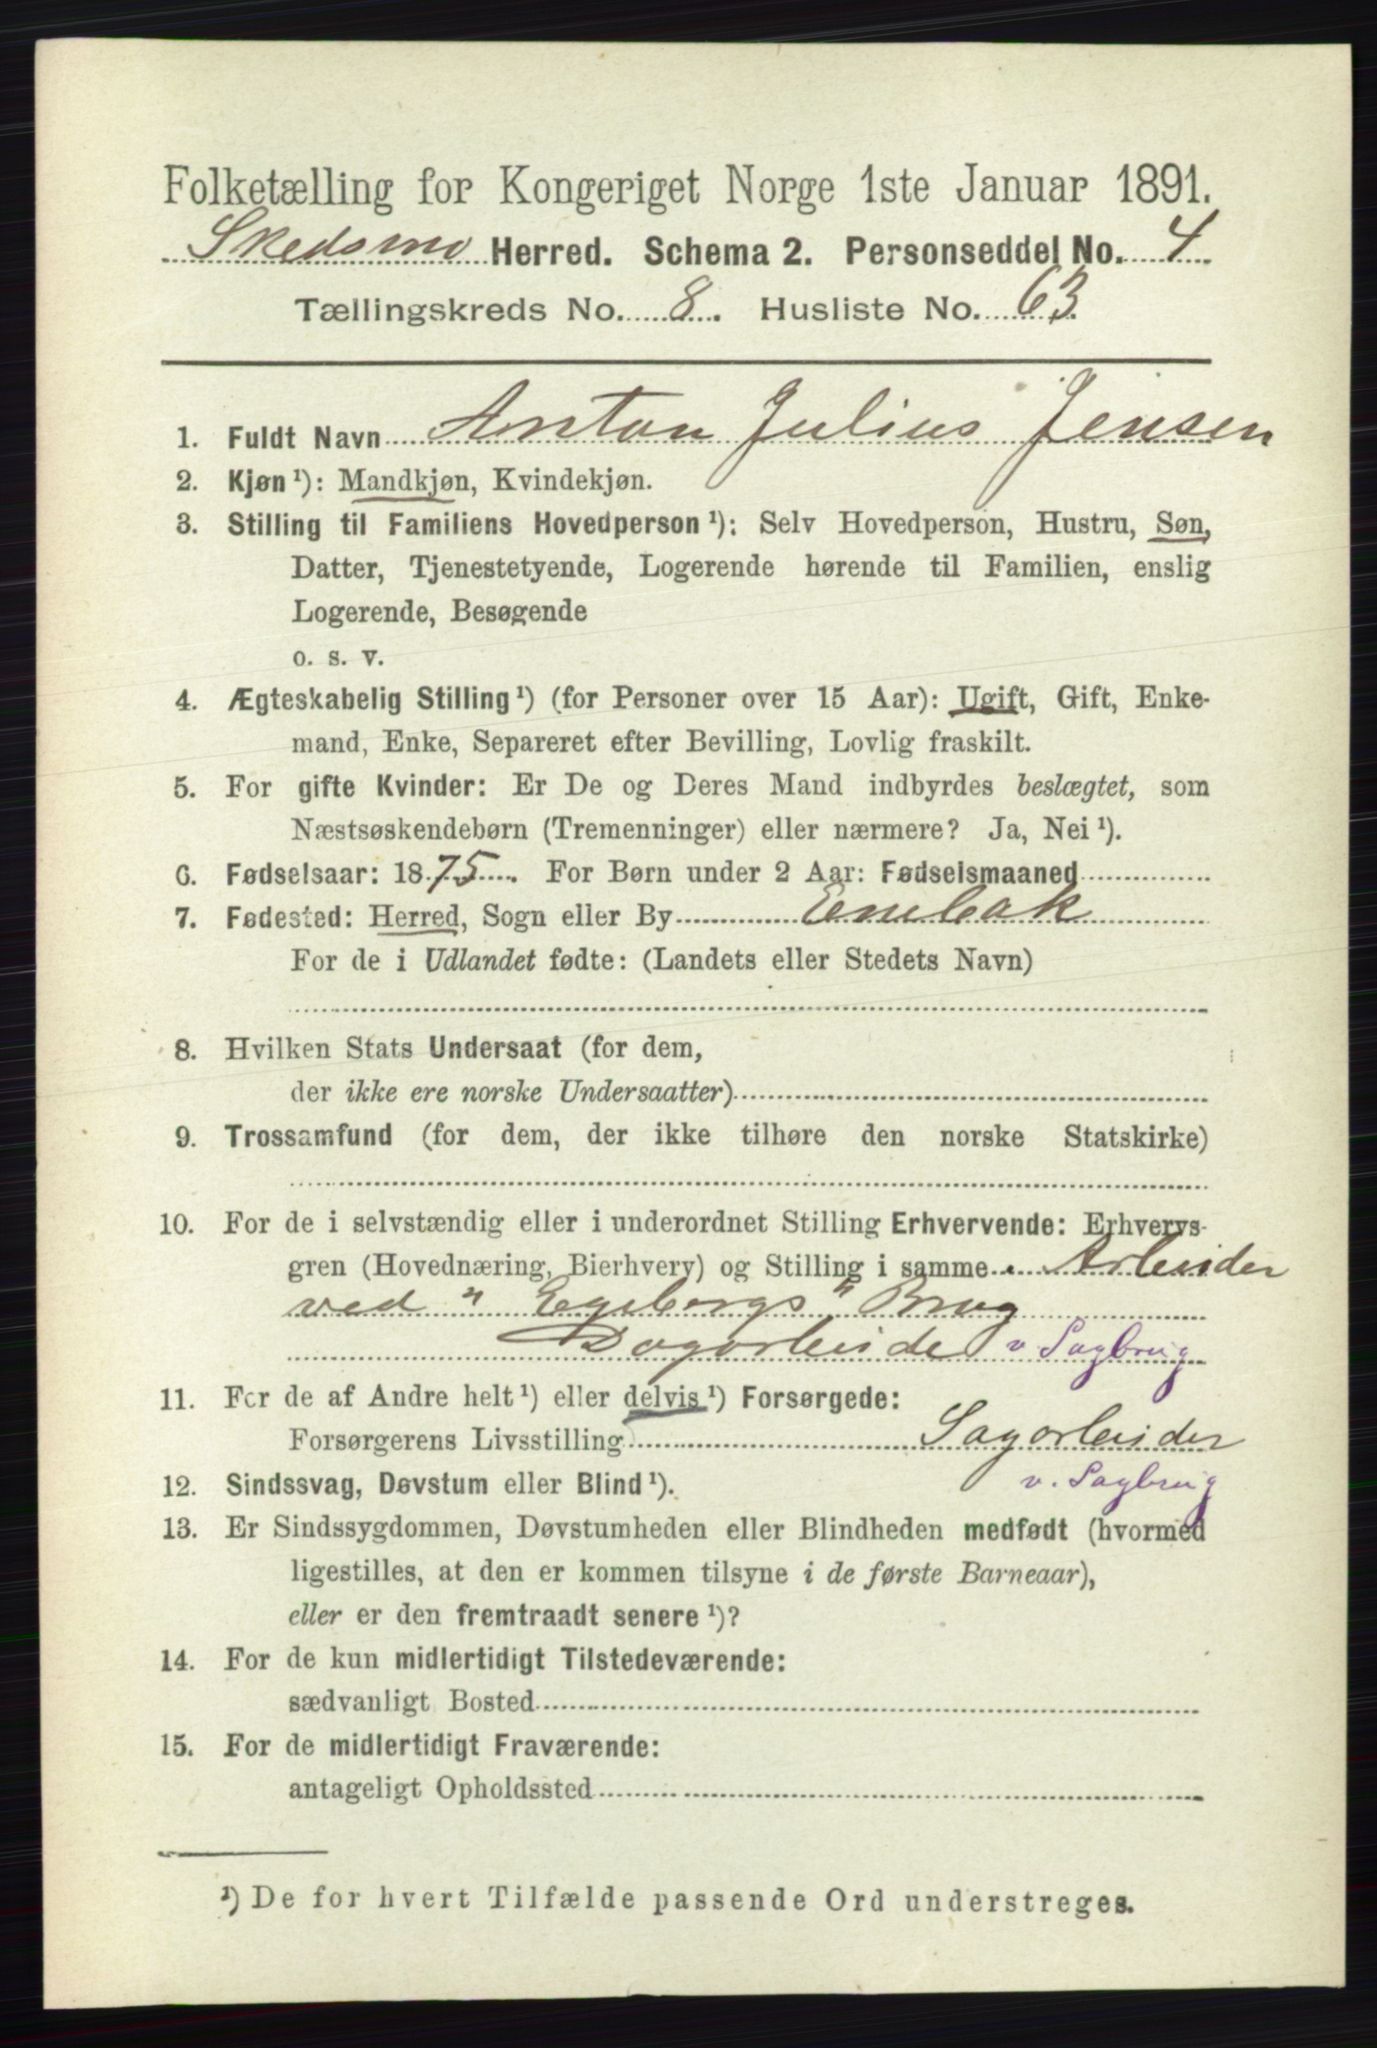 Folketælling for Kongeriget Norge 1ste Januar 1891.
Skedsmo Herred. Schema 2. Personseddel No. 4
Tællingskreds No. 8. Husliste No. 63
1. Fuldt Navn Anton Julius Jensen
2. Kjøn ¹): Mandkjøn, Kvindekjøn.
3. Stilling til Familiens Hovedperson ¹): Selv Hovedperson, Hustru, Søn,
Datter, Tjenestetyende, Logerende hørende til Familien, enslig
Logerende, Besøgende
o. s. v.
4. Ægteskabelig Stilling ¹) (for Personer over 15 Aar): Ugift, Gift, Enke-
mand, Enke, Separeret efter Bevilling, Lovlig fraskilt.
5. For gifte Kvinder: Er De og Deres Mand indbyrdes beslægtet, som
Næstsøskendebørn (Tremenninger) eller nærmere? Ja, Nei ¹).
6. Fødselsaar: 1875. For Børn under 2 Aar: Fødselsmaaned
7. Fødested: Herred, Sogn eller By Enebak
For de i Udlandet fødte: (Landets eller Stedets Navn)
8. Hvilken Stats Undersaat (for dem,
der ikke ere norske Undersaatter)
9. Trossamfund (for dem, der ikke tilhøre den norske Statskirke)
10. For de i selvstændig eller i underordnet Stilling Erhvervende: Erhvervs-
gren (Hovednæring, Bierhverv) og Stilling i samme. Arbeider
ved "Egebergs" Brug
Dagarbeide v. Sagbrug
11. For de af Andre helt ¹) eller delvis ¹) Forsørgede:
Forsørgerens Livsstilling Sagarbeider
v. Sagbrug
12. Sindssvag, Døvstum eller Blind ¹).
13. Er Sindssygdommen, Døvstumheden eller Blindheden medfødt (hvormed
ligestilles, at den er kommen tilsyne i de første Barneaar),
eller er den fremtraadt senere ¹)?
14. For de kun midlertidigt Tilstedeværende:
sædvanligt Bosted
15. For de midlertidigt Fraværende:
antageligt Opholdssted
¹) De for hvert Tilfælde passende Ord understreges.